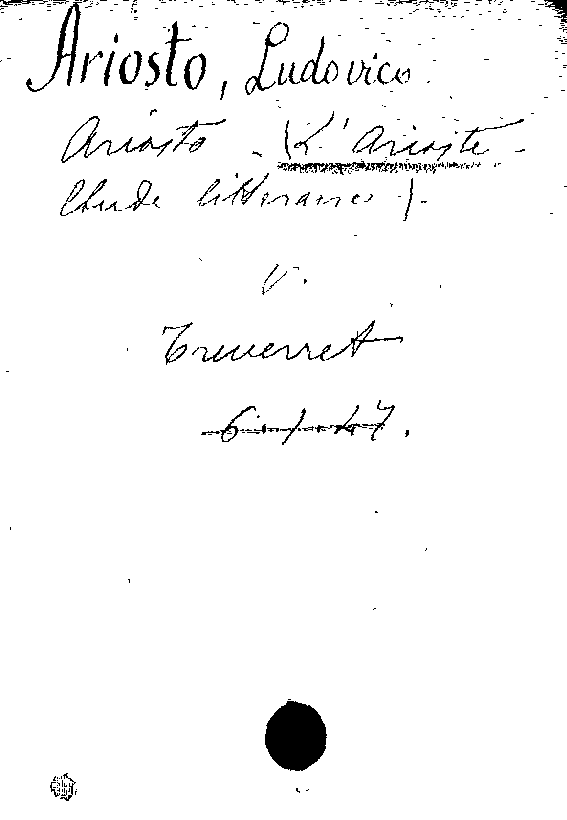 Ariosto, Ludovico.
Ariosto - (L'Arioste -
Etude litteraires).
V.
Treverret
6.1.47.